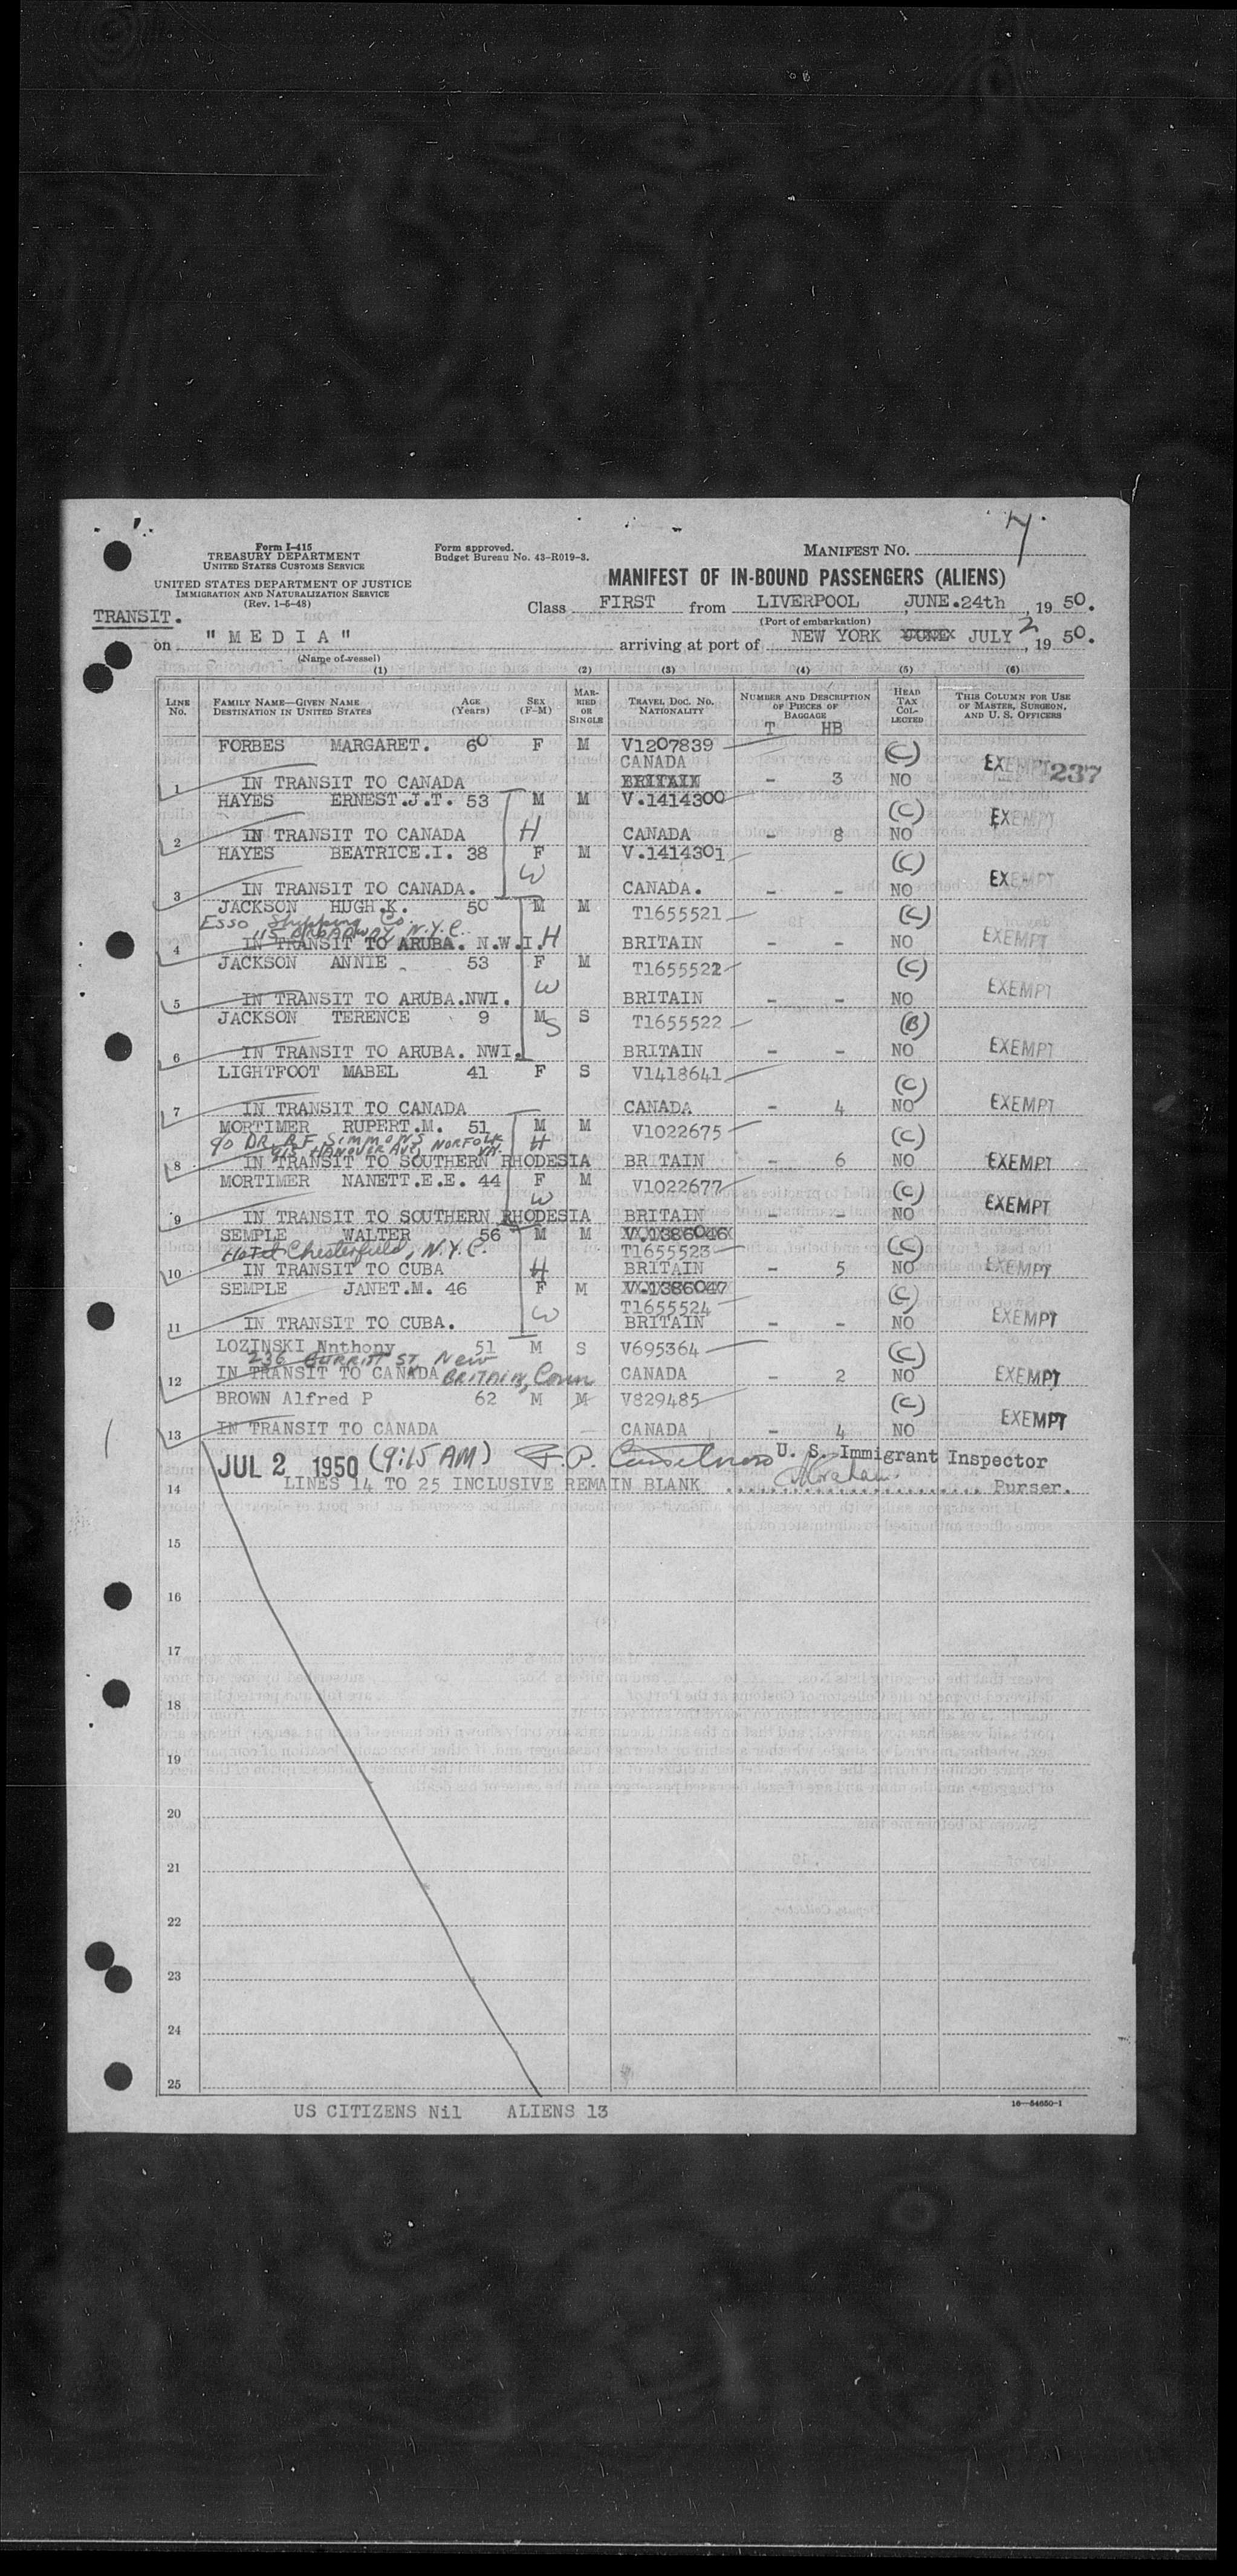 Form I-415
TREASURY DEPARTMENT
UNITED STATES CUSTOMS SERVICE
UNITED STATES DEPARTMENT OF JUSTICE
IMMIGRATION AND NATURALIZATION SERVICE
(Rev. 1-5-48)
Form approved.
Budget Bureau No. 43-R019-3.
MANIFEST NO.
MANIFEST OF IN-BOUND PASSENGERS (ALIENS)
TRANSIT.
Class FIRST from LIVERPOOL, JUNE.24th, 1950.
(Port of embarkation)
on "MEDIA" arriving at port of NEW YORK JULY 2, 1950.
(Name of vessel)
(1) (2) (3) (4) (5) (6)
LINE No. FAMILY NAME—GIVEN NAME DESTINATION IN UNITED STATES AGE (Years) SEX (F-M) MARRIED OR SINGLE TRAVEL DOC. NO. NATIONALITY NUMBER AND DESCRIPTION OF PIECES OF BAGGAGE HEAD TAX COLLECTED THIS COLUMN FOR USE OF MASTER, SURGEON, AND U. S. OFFICERS
T HB
FORBES MARGARET. 60 F M V1207839 (C) EXEMPT 237
CANADA
1 IN TRANSIT TO CANADA BRITAIN - 3 NO
HAYES ERNEST.J.T. 53 M M V.1414300 (C) EXEMPT
2 IN TRANSIT TO CANADA H CANADA - 8 NO
HAYES BEATRICE.I. 38 F M V.1414301 (C) EXEMPT
3 IN TRANSIT TO CANADA. W CANADA. - - NO
JACKSON HUGH.K. 50 M M T1655521 (C) EXEMPT
Esso Shipping Co.
115 BROADWAY N.Y.C.
4 IN TRANSIT TO ARUBA. N.W.I. H BRITAIN - - NO
JACKSON ANNIE 53 F M T1655522 (C) EXEMPT
5 IN TRANSIT TO ARUBA.NWI. W BRITAIN - - NO
JACKSON TERENCE 9 M S S T1655522 (B)
6 IN TRANSIT TO ARUBA. NWI. BRITAIN - - NO EXEMPT
LIGHTFOOT MABEL 41 F S V1418641 (C)
7 IN TRANSIT TO CANADA CANADA - 4 NO EXEMPT
MORTIMER RUPERT.M. 51 M M V1022675 (C)
c/o DR. R.F. SIMMONS H
915 HANOVER AVE, NORFOLK VA.
8 IN TRANSIT TO SOUTHERN RHODESIA BRITAIN - 6 NO EXEMPT
MORTIMER NANETT.E.E. 44 F M V1022677 (C) EXEMPT
9 IN TRANSIT TO SOUTHERN RHODESIA W BRITAIN - - NO
SEMPLE WALTER 56 M M V.1386046
Hotel Chesterfield, N.Y.C. T1655523 (C)
10 IN TRANSIT TO CUBA H BRITAIN - 5 NO EXEMPT
SEMPLE JANET.M. 46 F M V.1386047 (C)
T1655524
11 IN TRANSIT TO CUBA. W BRITAIN - - NO EXEMPT
LOZINSKI Nnthony 51 M S V695364 (C)
236 BURRITT ST. New
12 IN TRANSIT TO CANADA BRITAIN, Conn CANADA - 2 NO EXEMPT
BROWN Alfred P 62 M M V829485 (C) EXEMPT
13 IN TRANSIT TO CANADA CANADA - 4 NO
JUL 2 1950 (9:15 AM) U. S. Immigrant Inspector
14 LINES 14 TO 25 INCLUSIVE REMAIN BLANK Purser.
15
16
17
18
19
20
21
22
23
24
25
US CITIZENS Nil ALIENS 13
16—54650-1